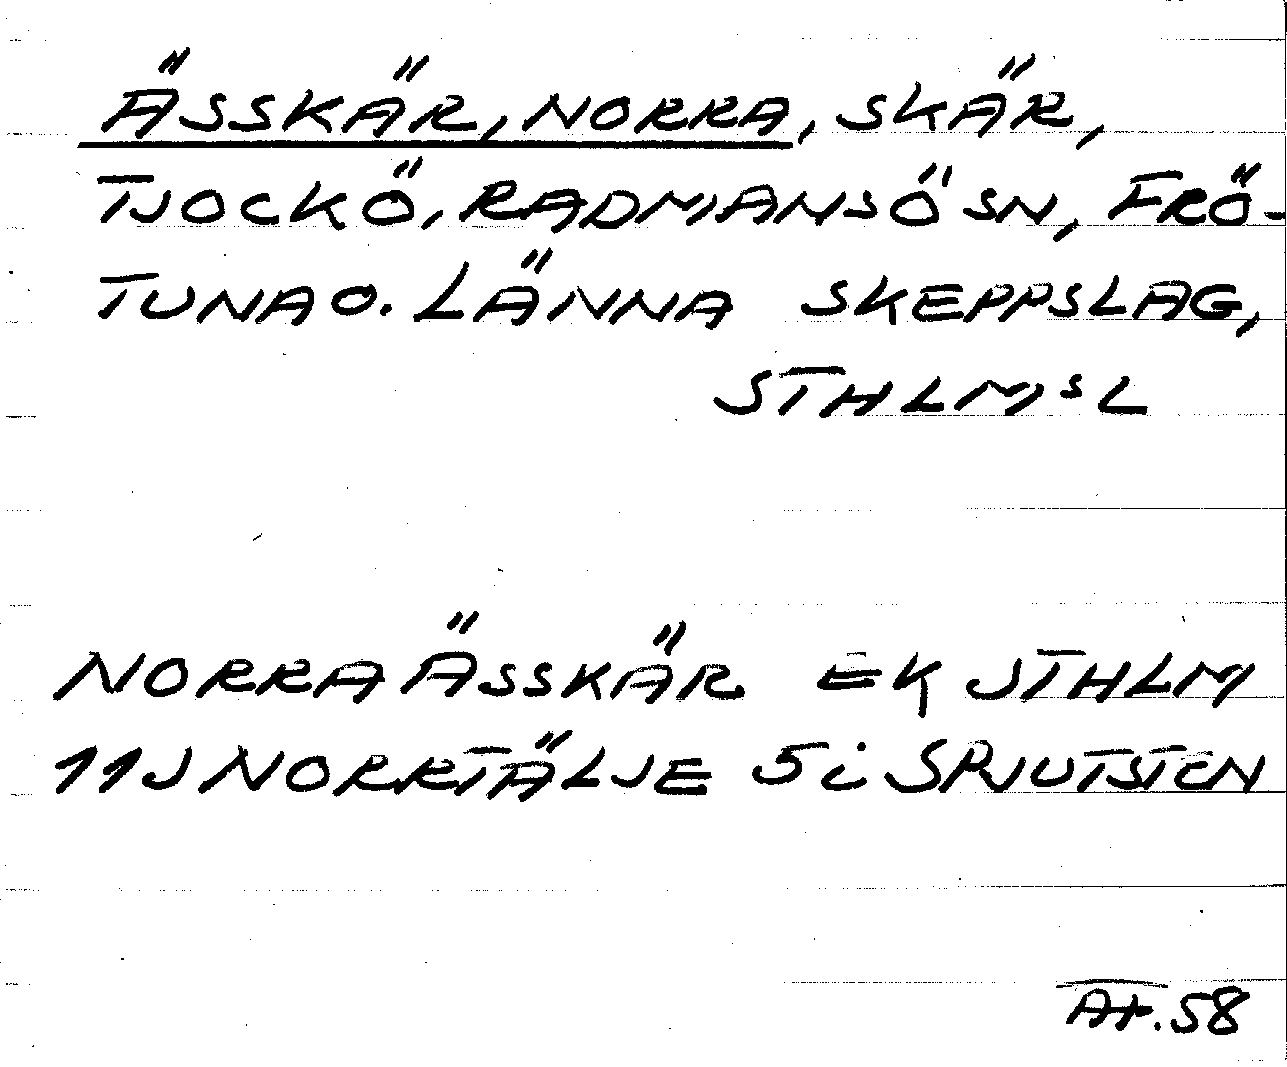 ÄSSKÄR, NORRA, SKÄR,
TJOCKÖ, RADMANSÖ SN, FRÖ-
TUNA O. LÄNNA SKEPPSLAG,
STHLMS L
NORRA ÄSSKÄR EK STHLM
11J NORRTÄLJE 5 i SPJUTSTEN
58